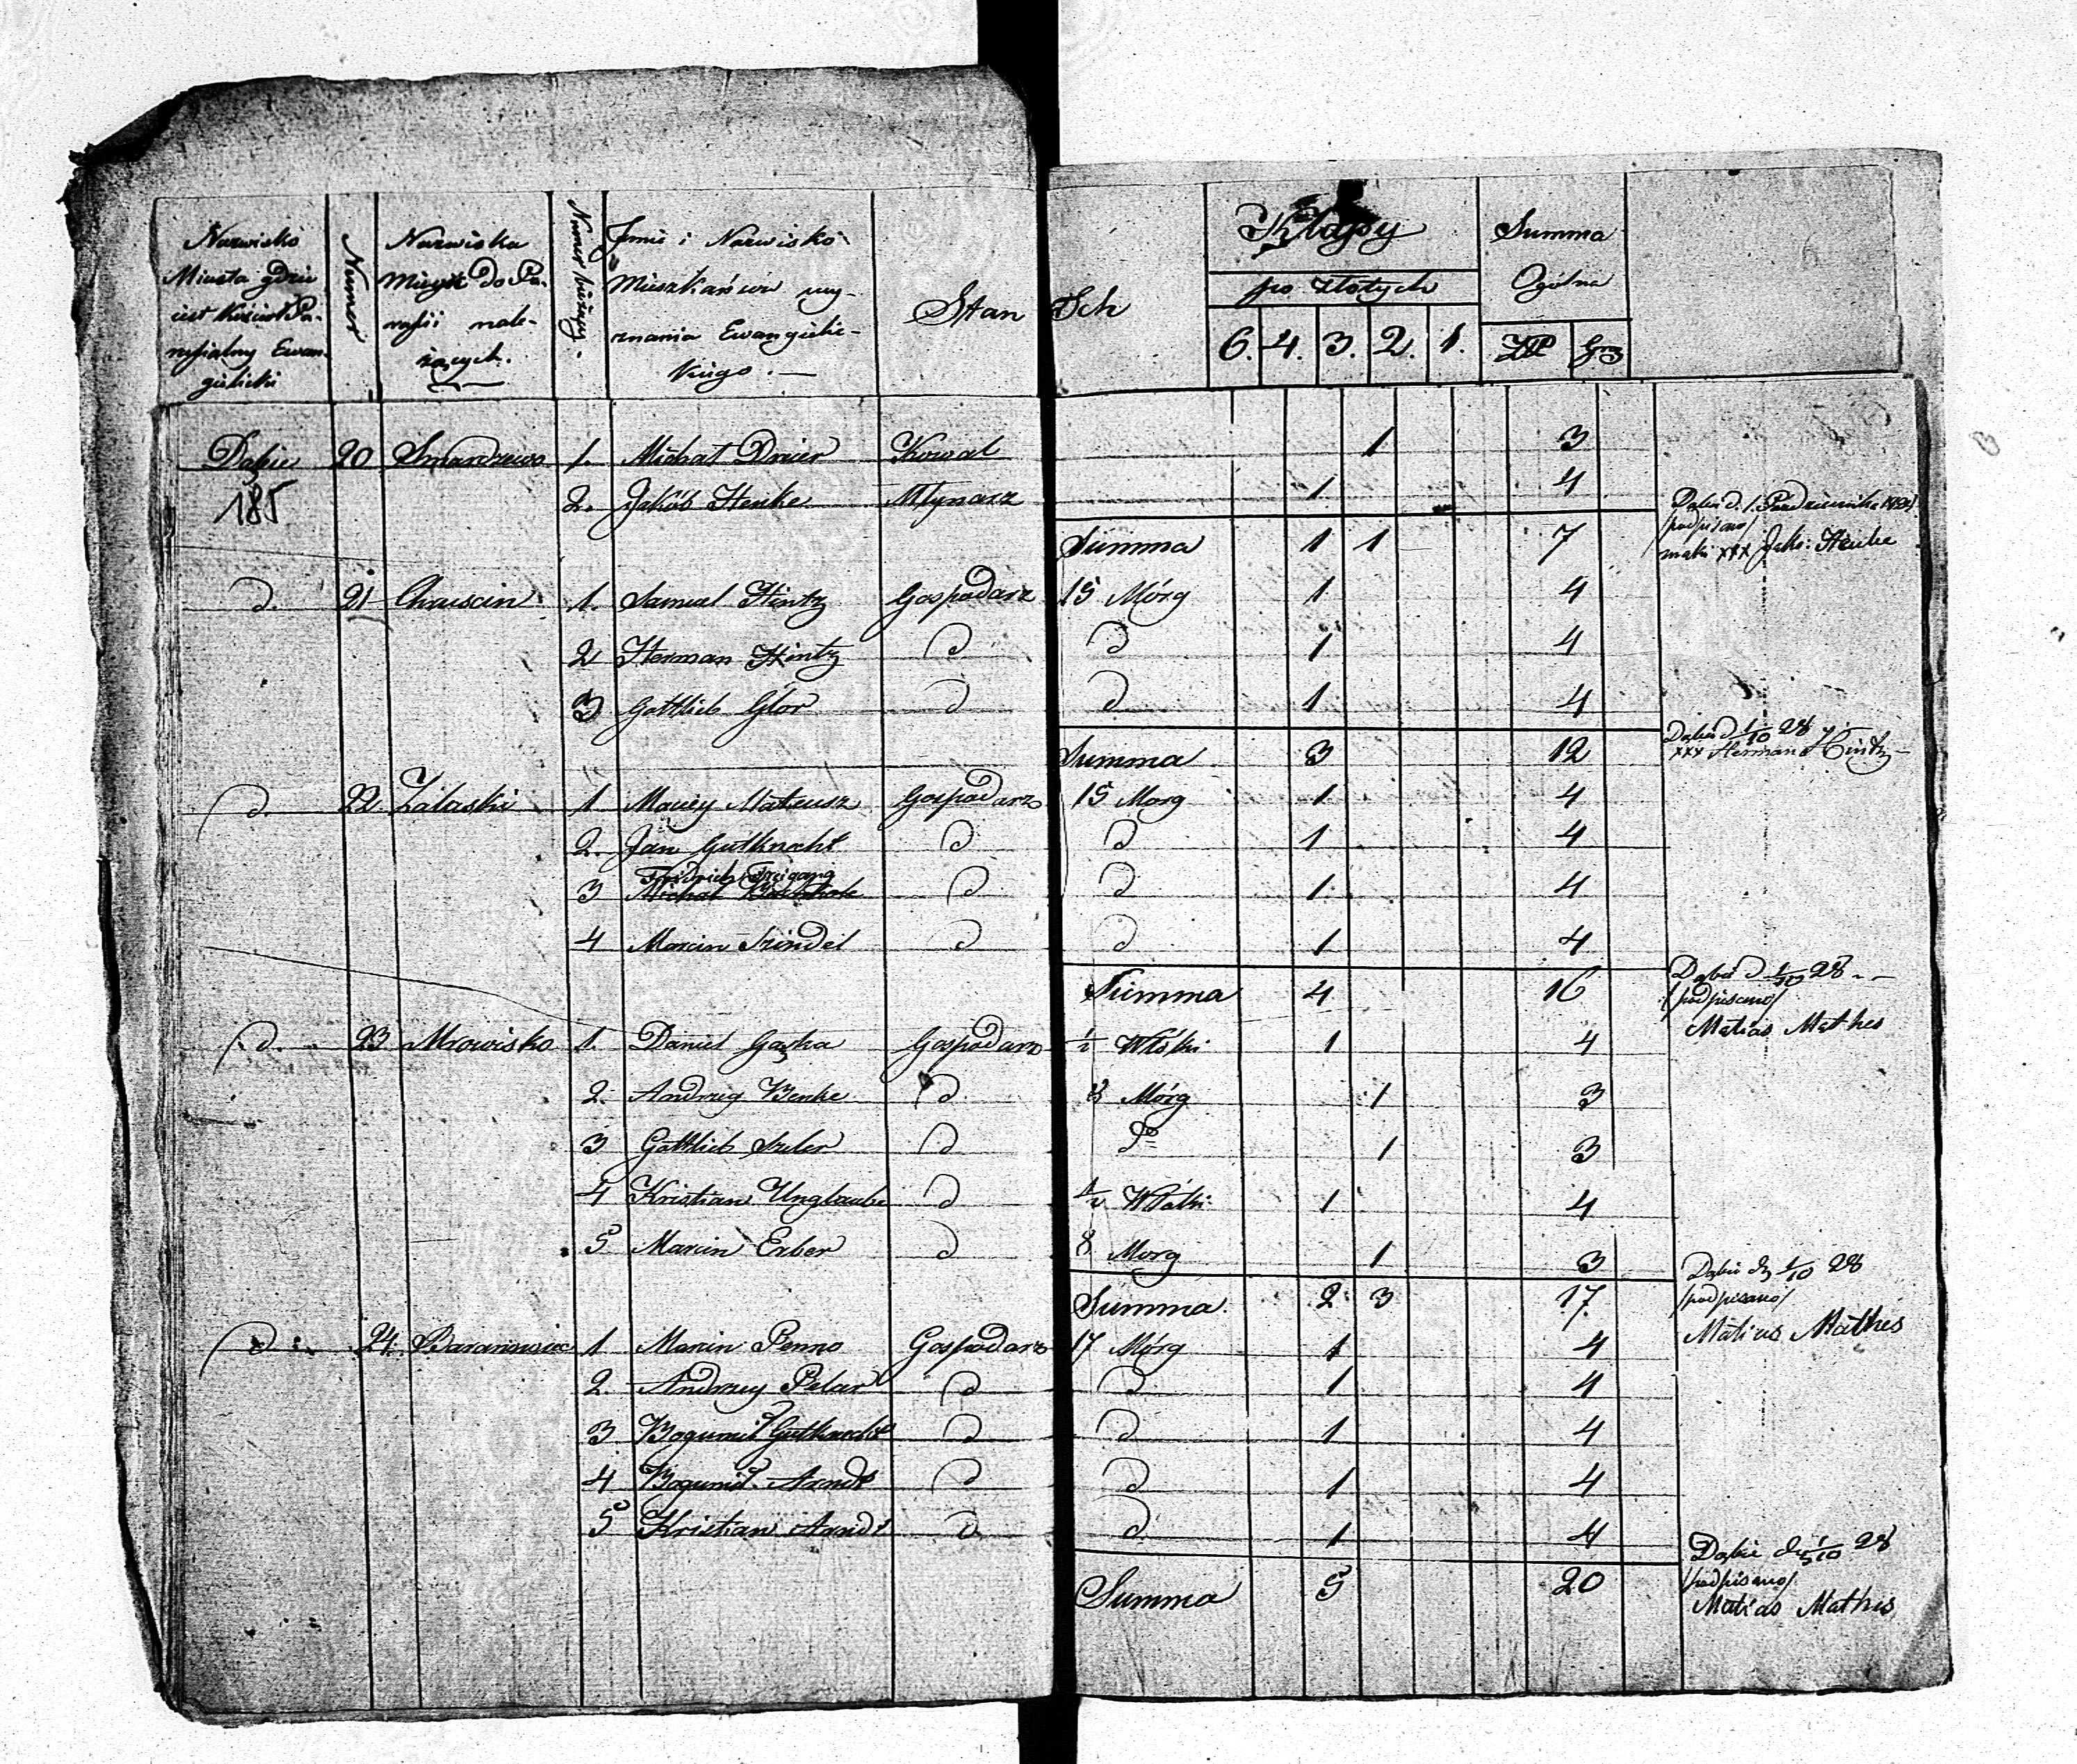 Nazwisko
Miasta gdzie
iest Kościoł Pa-
rafialny Ewan-
gielicki
Numer
Nazwiska
Mieysc do Pa-
rafii nale-
żących.
Numer bieżący.
Jmie i Nazwisko
Mieszkańców wy-
znania Ewangielic-
kiego. —
Stan Ich
Klassy
po Złotych
6. 4. 3. 2. 1.
Summa
Ogólna
ZłP Grs
Dąbie 20 Smardzewo 1. Michał Drier Kowal 1 3
185 2. Jakób Henke Młynarz 1 4
Dąbie d. 1. Października
/podpisano/
Summa 1 1 7
xxx Jakó: Henke
d. 21 Chruscin 1. Samuel Hintz Gospodarz 15 Mórg 1 4
2 Herman Hintz d d 1 4
3 Gottlieb Glör d d 1 4
Dąbie d 1/10 28
Summa 3 12
xxx Herman Hintz
d. 22. Zalaski 1. Maciey Mateusz Gospodarz 15 Morg 1 4
2. Jan Gutknecht d d 1 4
Fridrich Freigang
3 Michał d d 1 4
4 Marcin Szindel d d 1 4
Dąbie d 1/10 28
Summa 4 16
/podpisano/
Matias Mathes
d. 23 Mrowisko 1. Daniel Gaska Gospodarz 1/2 Włóki 1 4
2. Andrzey Benke d 8 Mórg 1 3
3 Gottlieb Szeler d do 1 3
4 Kristian Unglaube d 1/2 Włóki 1 4
5 Marcin Erber d 8 Morg 1 3
Dąbie d 1/10 28
Summa 2 3 17
/podpisano/
Matias Mathes
d 24. Baranowiec 1 Marcin Penno Gospodarz 17 Mórg 1 4
2. Andrzey Pelar d d 1 4
3. Bogumił Gutknecht d d 1 4
4 Bogumił Arndt d d 1 4
5 Kristian Arndt d d 1 4
Dąbie d 1/10 28
Summa 5 20
/podpisano/
Matias Mathes